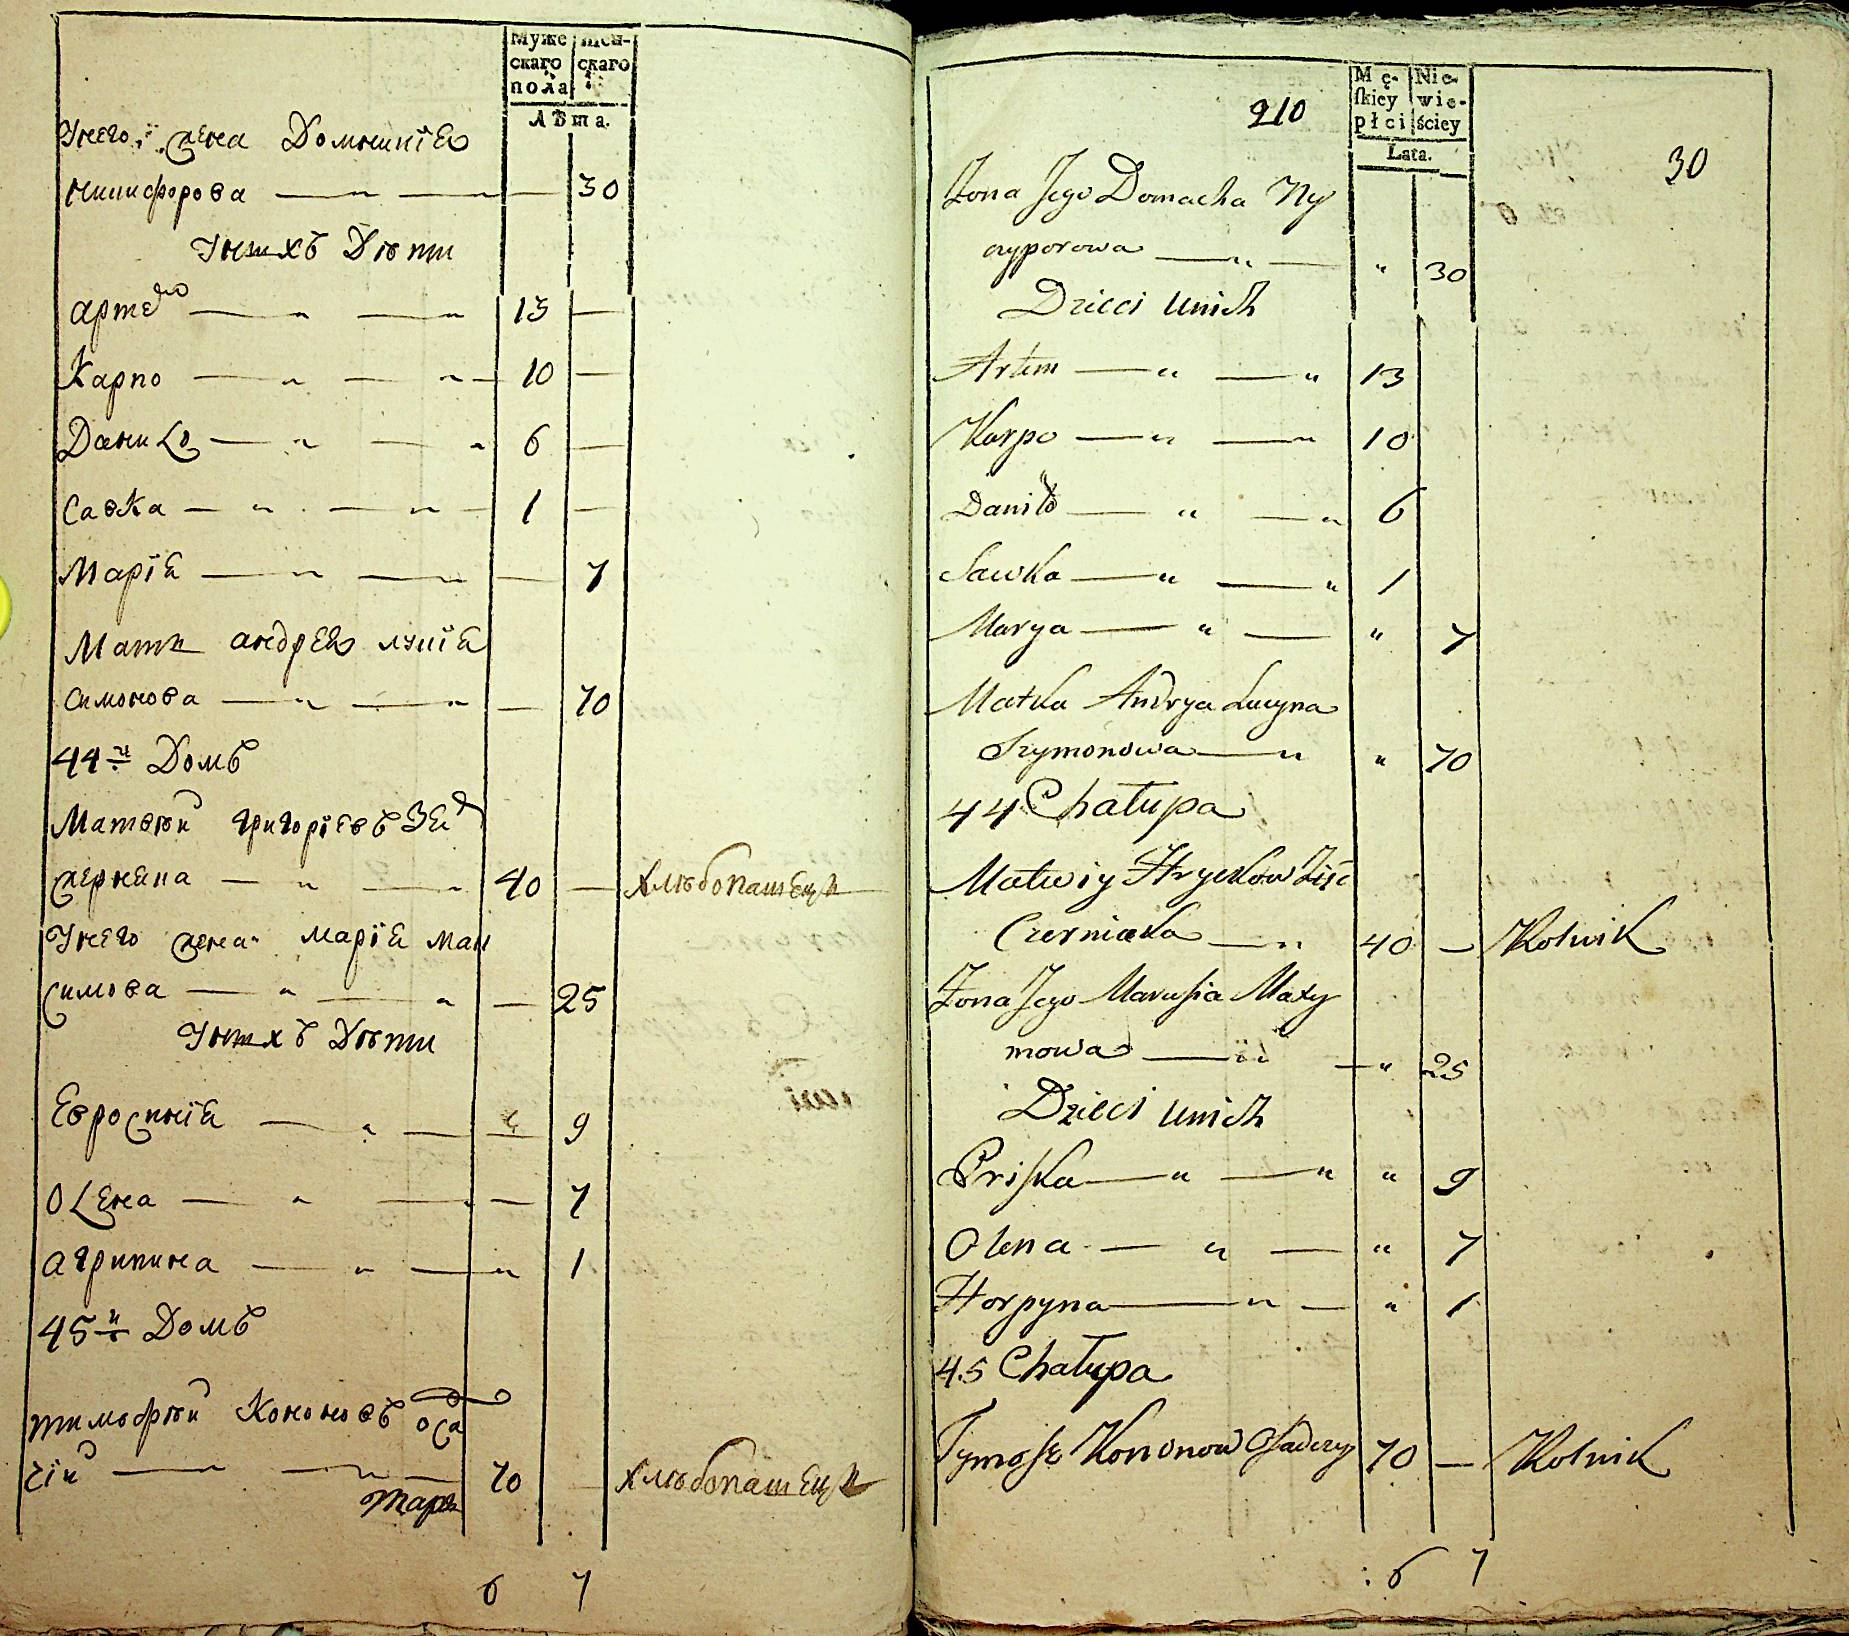 Муже
скаго
пола
жен-
скаго
Лѣта.
У него жена Домникія
никифорова 30
У нихъ Дѣти
артемъ 13
Карпо 10
Данило 6
Савка 1
Марія 7
Мати андрея
симонова 70
44й Домъ
Матвѣй григоріевъ
40 хлѣбопашецъ
У него жена марія мак
симова 25
У нихъ Дѣти
Евросинія 9
Олена 7
агрипина 1
45й Домъ
тимофѣй Кононовъ оса
чій 70 хлѣбопашецъ
6 7
210
Mę-
ſkiey
płci
Nie-
wie-
ściey
Lata.
30
Żona Jego Domacha Ny
czyporowa " 30
Dzieci u nich
Artem " " 13
Karpo " " 10
Daniło " " 6
Sawka " " 1
Marya " " 7
Matka Andrya Lucyna
Szymonowa " " 70
44 Chałupa
Matwiy Hryckow Zięć
Czerniaka " 40 Rolnik
Żona Jego Marusia Maxy
mowa " 25
Dzieci u nich
Priſka " " " 9
Olena " " 7
Horpyna " " 1
45 Chałupa
Tymosz Kononow Osadczy 70 Rolnik
6 7